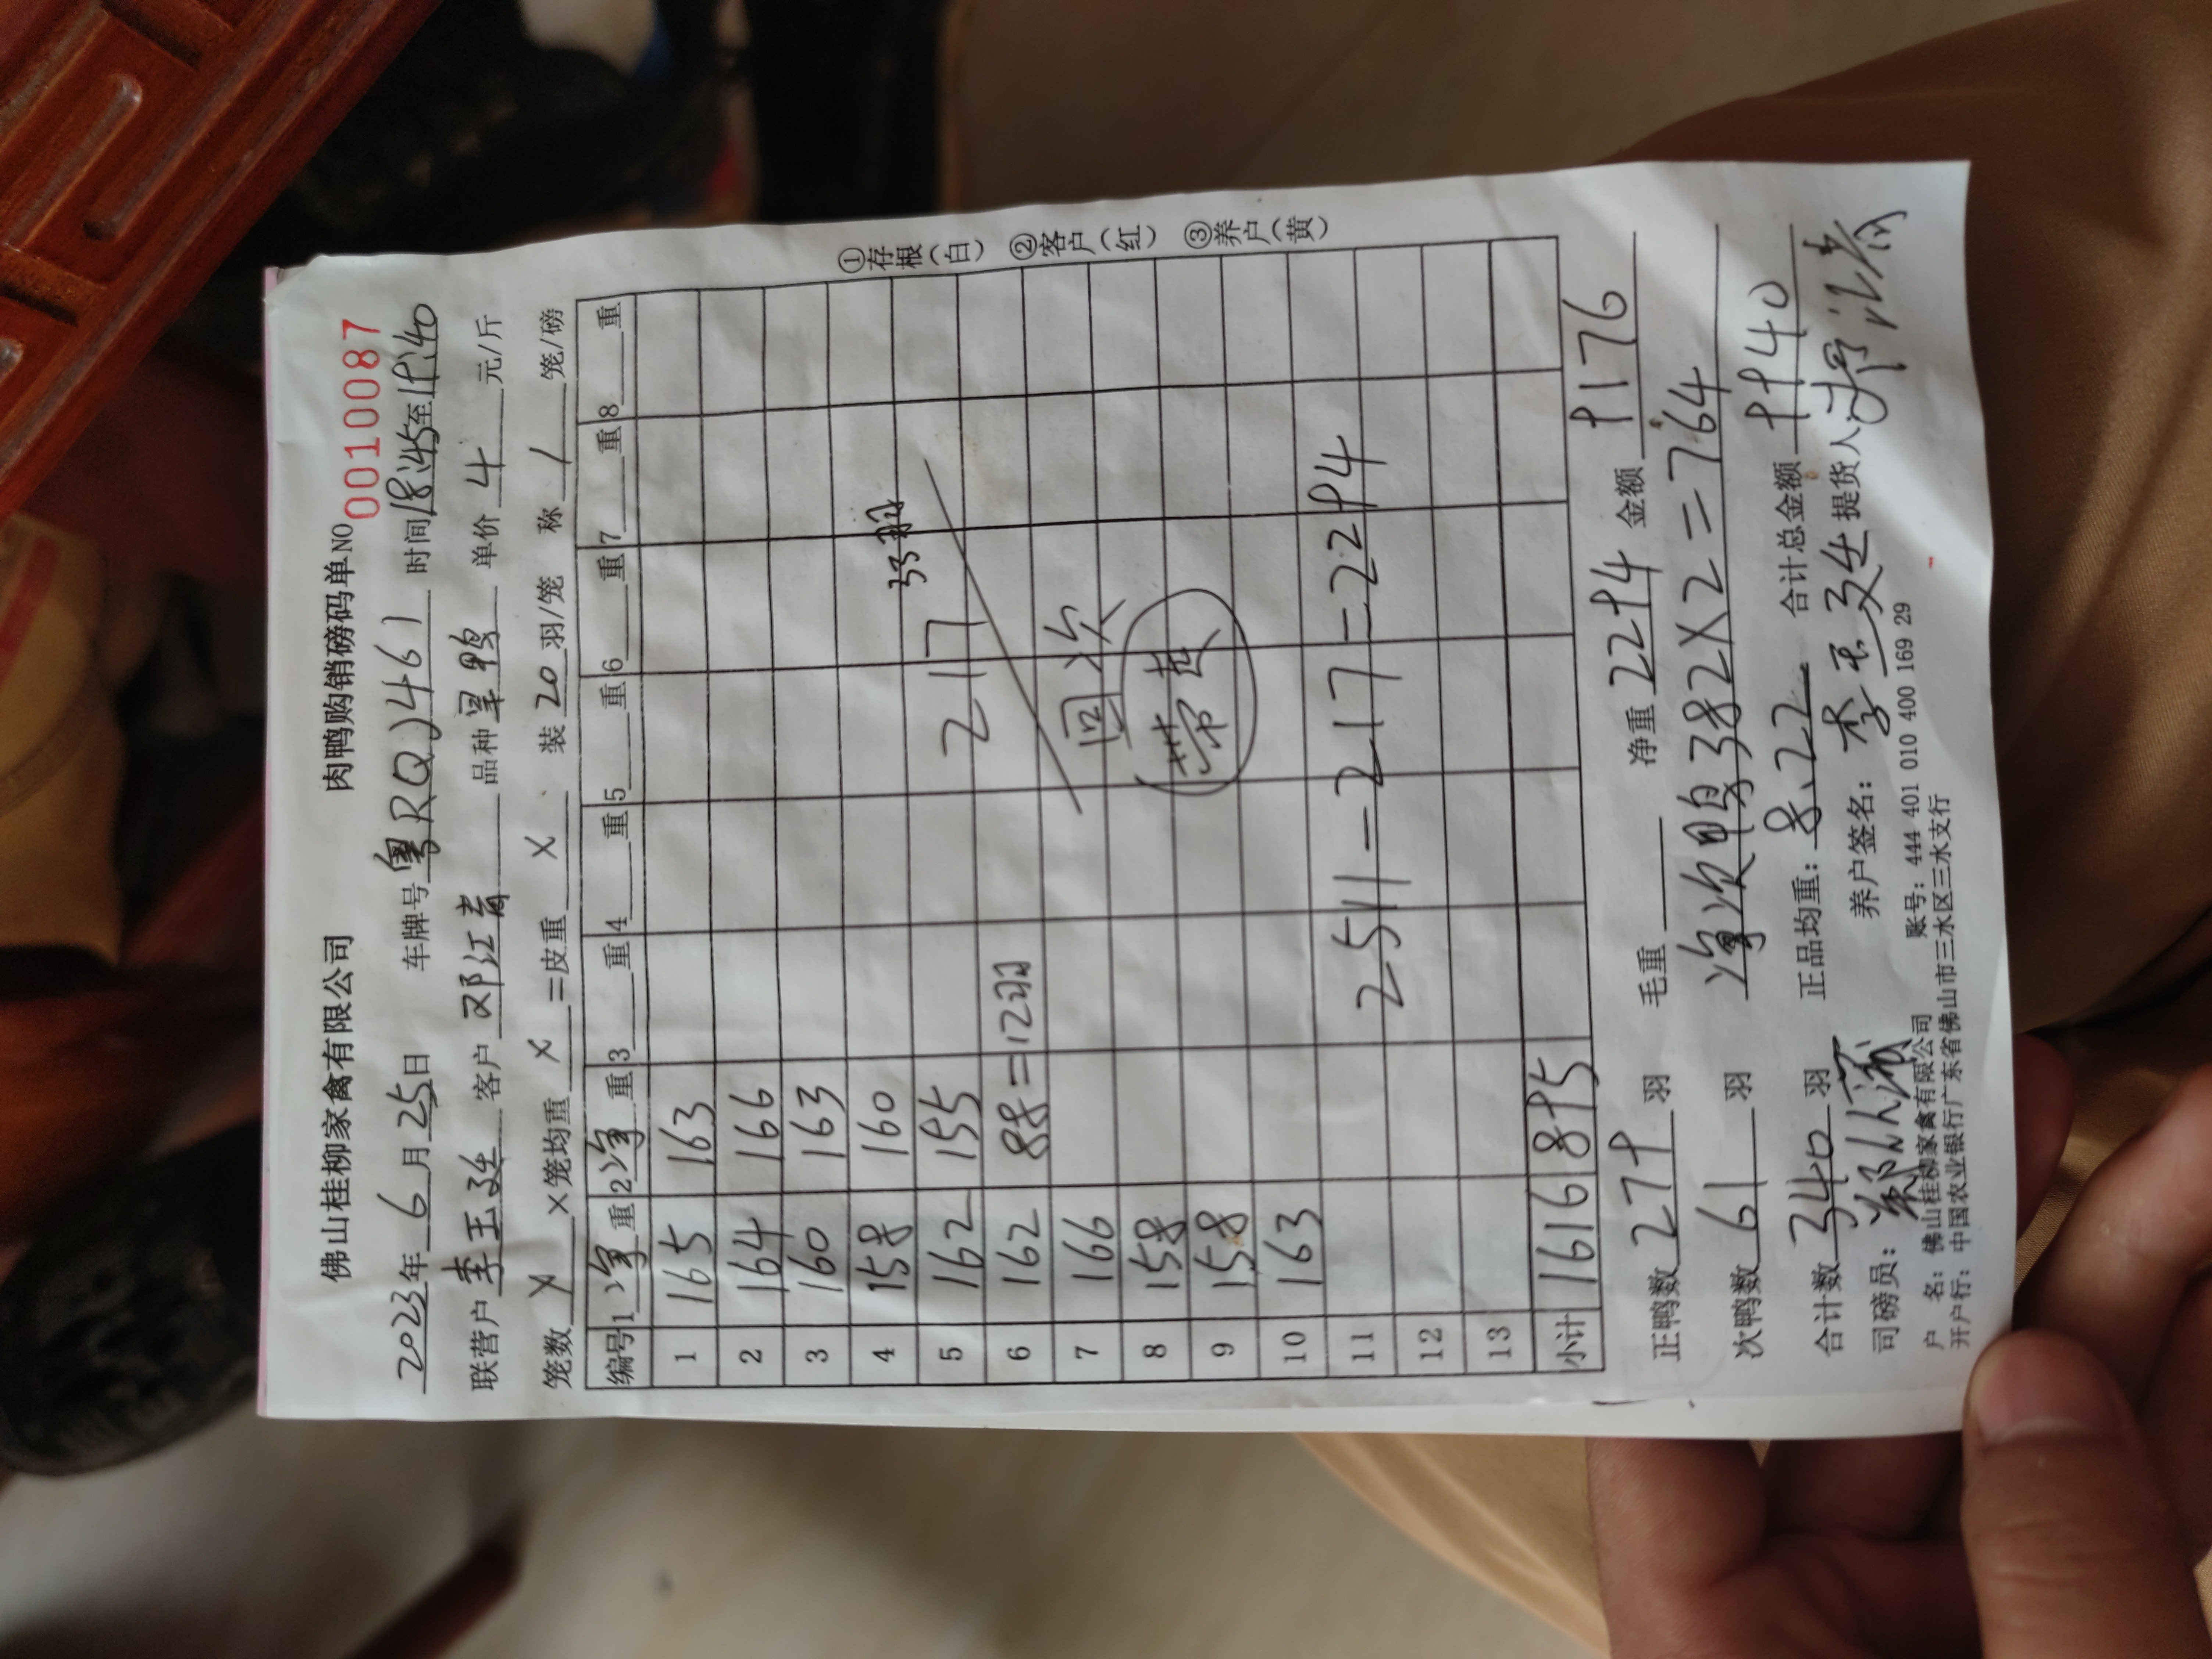 佛山桂柳家禽有限公司 肉鸭购销磅码单 NO 0010087
2023年 6月25日 车牌号 粤RQJ461 时间 18:45至19:40
联营户 李玉廷 客户 邓江青 品种 旱鸭 单价 4 元/斤
笼数 X X笼均重 X =皮重 X 、装 20 羽/笼 称 / 笼/磅
编号 1净重 2净重 3 重 4 重 5 重 6 重 7 重 8 重
1 165 163
2 164 166
3 160 163
4 158 160 33羽
5 162 155 217
6 162 88=12羽
7 166 回次
8 158 带
9 158
10 163
11 2511-217=2294
12
13
小计 1616 895
正鸭数 279 羽 毛重 净重 2294 金额 9176
次鸭数 61 羽 净次鸭382X2=764
合计数 340 羽 正品均重: 8.22 合计总金额 9940
司磅员: 养户签名: 李玉廷 提货人
户 名: 佛山桂柳家禽有限公司 账号: 444 401 010 400 169 29
开户行: 中国农业银行广东省佛山市三水区三水支行
①存根(白) ②客户(红) ③养户(黄)